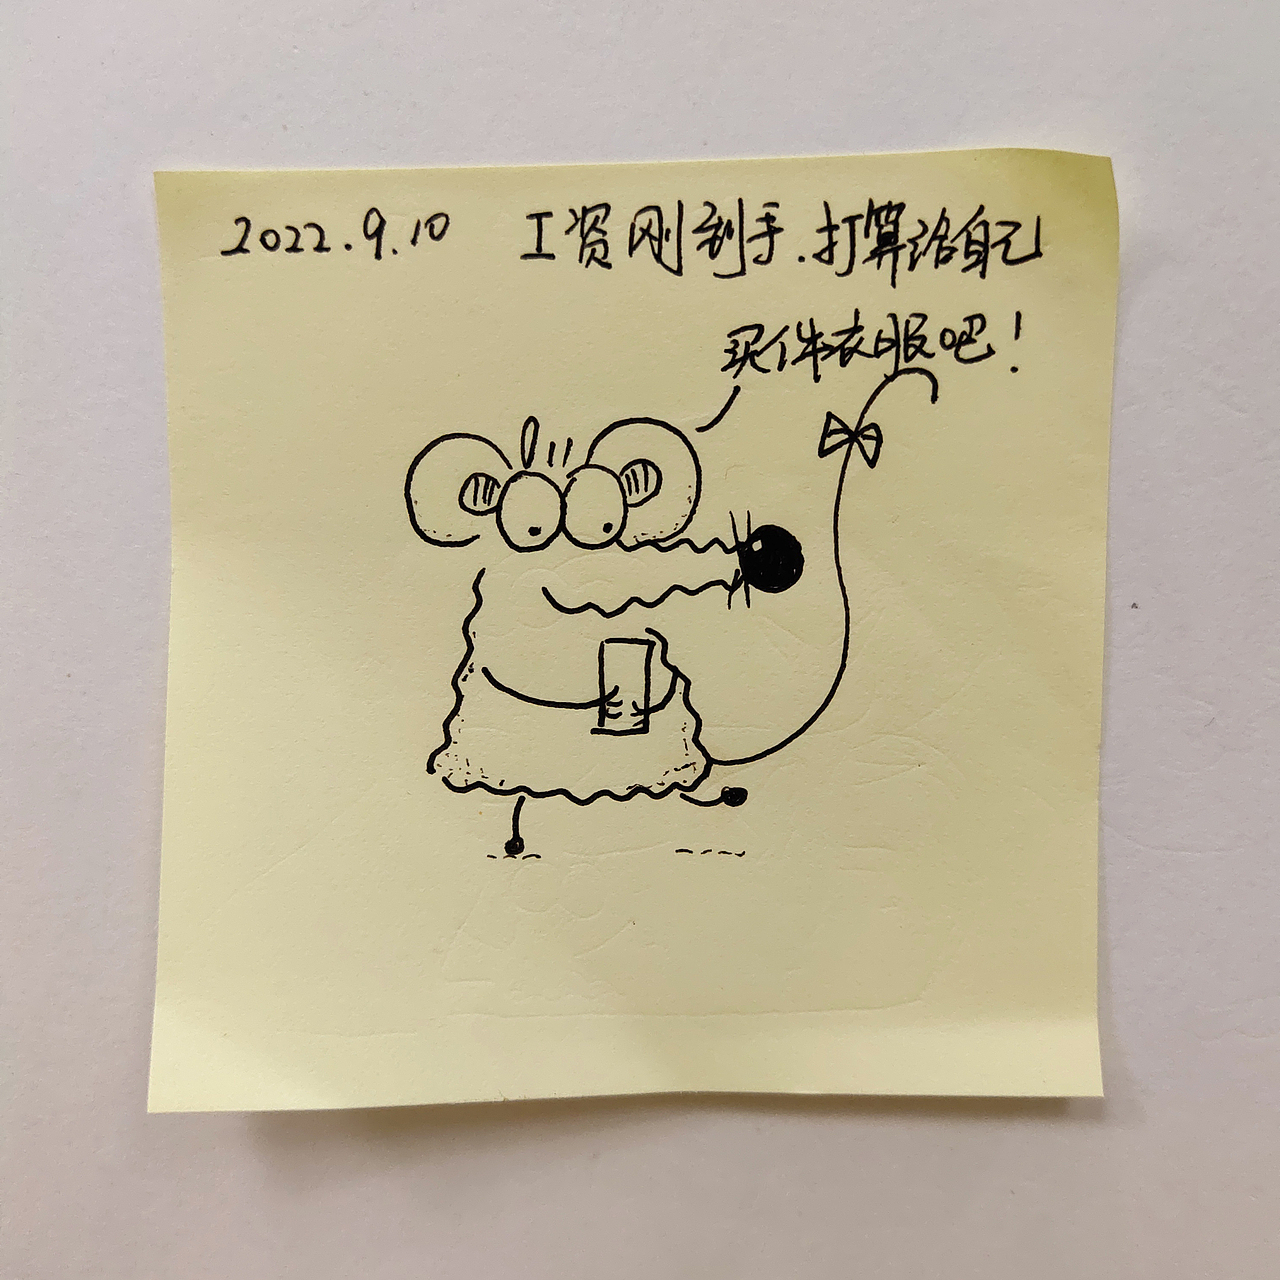 2022.9.10 工资刚到手.打算给自己
买件衣服吧!